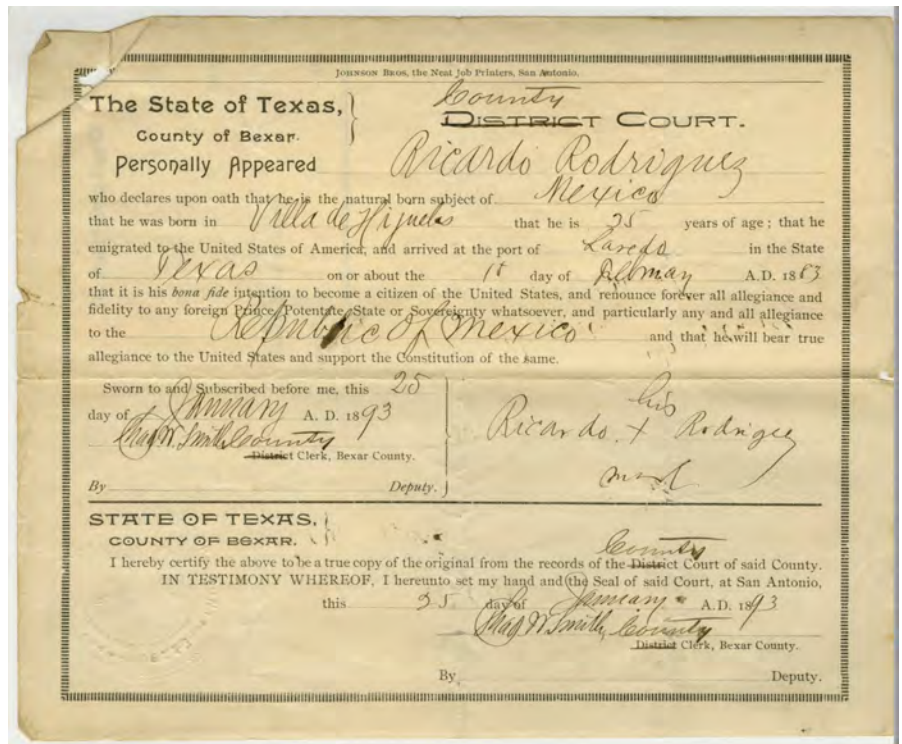 JOHNSON BROS, the Neat Job Printers, San Antonio.
The State of Texas, County
County of Bexar. DISTRICT COURT.
Personally Appeared Ricardo Rodriguez
who declares upon oath that he is the natural born subject of Mexico
that he was born in Villa de Higueles that he is 35 years of age; that he
emigrated to the United States of America, and arrived at the port of Laredo in the State
of Texas on or about the 1st day of A.D. 1883
that it is his bona fide intention to become a citizen of the United States, and renounce forever all allegiance and
fidelity to any foreign Prince, Potentate, State or Sovereignty whatsoever, and particularly any and all allegiance
to the Republic of Mexico and that he will bear true
allegiance to the United States and support the Constitution of the same.
Sworn to and Subscribed before me, this 25
day of January A. D. 1893
Thad W. Smith County
District Clerk, Bexar County.
By Deputy.
his
Ricardo + Rodrigez
mark
STATE OF TEXAS,
COUNTY OF BEXAR.
County
I hereby certify the above to be a true copy of the original from the records of the District Court of said County.
IN TESTIMONY WHEREOF, I hereunto set my hand and the Seal of said Court, at San Antonio,
this 25 day of January A.D. 1893
Thad W. Smith, County
District Clerk, Bexar County.
By Deputy.